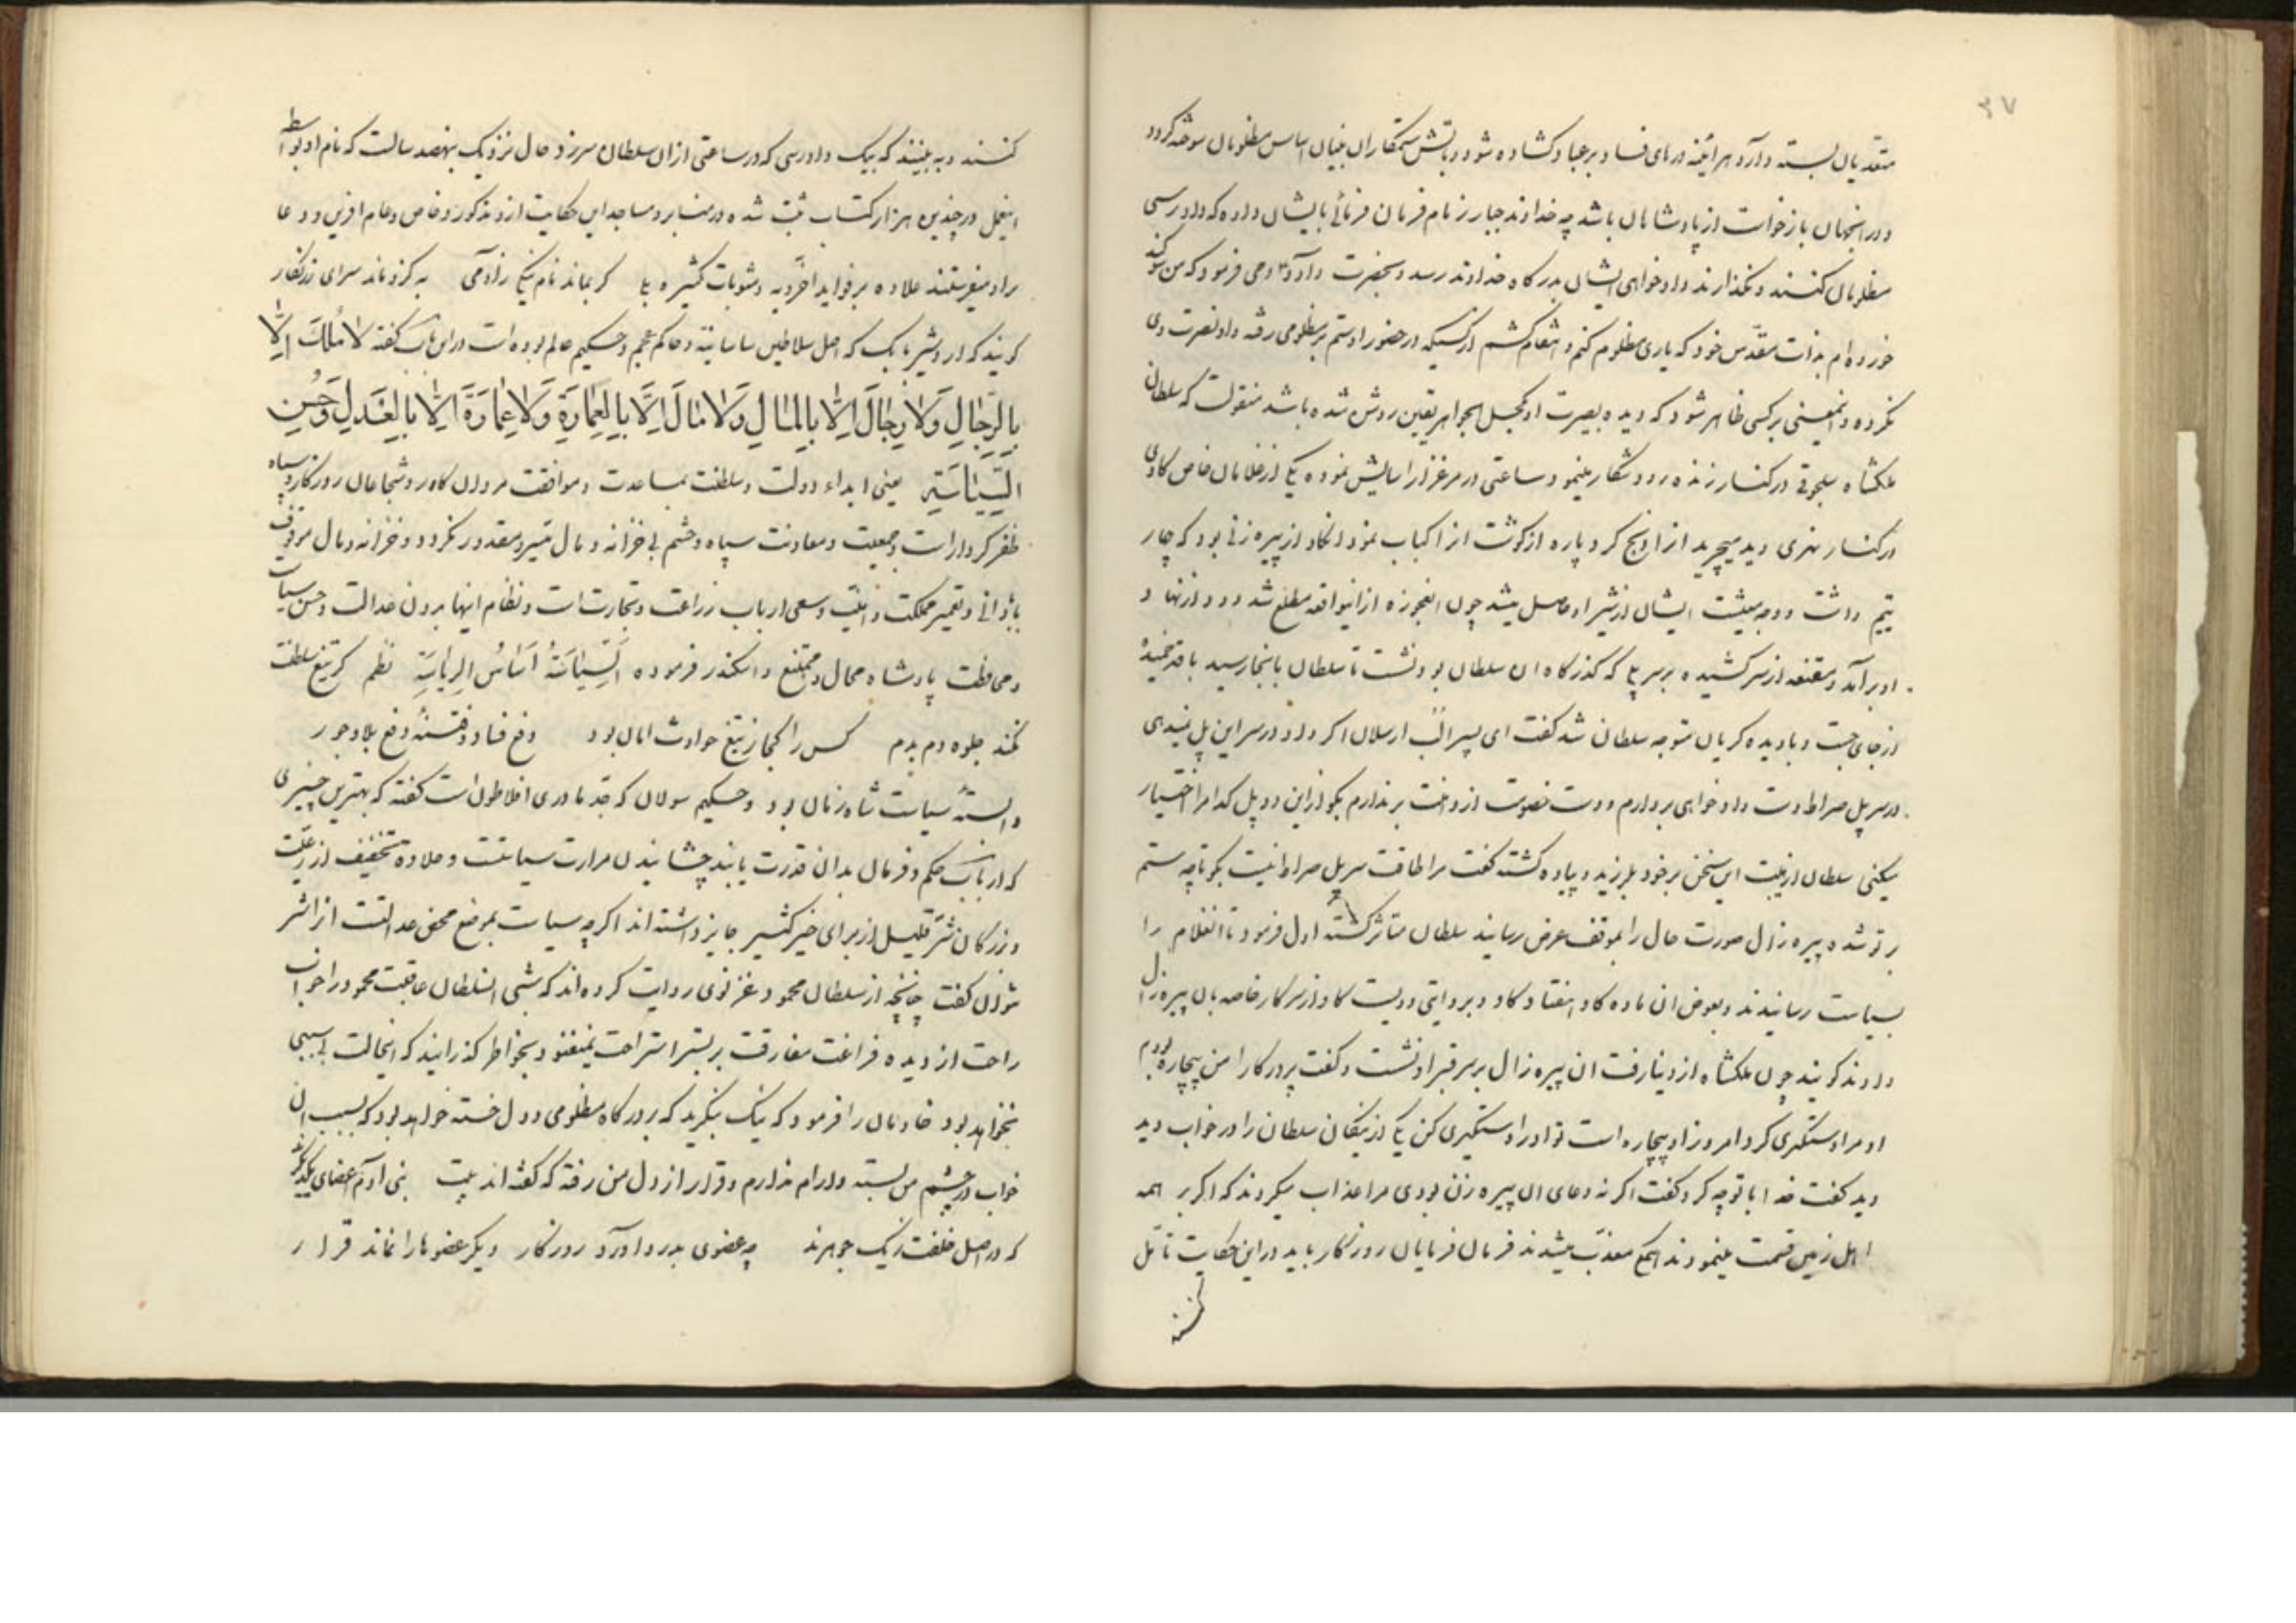 ۳۷
متعدیان بسته دارد هرآینه درهای فساد بر عباد کشاده شود و باتش ستمکاران بنیان اساس مظلومان سوخته کردد
و در انجهان بازخواست از پادشاهان باشد چه خداوند جبار زمام فرمان فرمائی بایشان داده که دادرسی
مظلومان کنند و نکذارند دادخواهی ایشان بدرکاه خداوند رسد و بحضرت داود وحی فرمود که من سوکند
خورده‌ام بذات مقدس خود که یاری مظلوم کنم و انتقام کشم از کسیکه در حضور او ستم بر مظلومی رفته و او نصرت وی
نکرده و اینمعنی بر کسی ظاهر شود که دیده بصیرت او بکحل الجواهر یقین روشن شده باشد منقولست که سلطان
ملکشاه سلجوقی در کنار زنده رود شکار مینمود ساعتی در مرغزار اسایش نموده یکی از غلامان خاص کاوی
در کنار نهری دید میچرید انرا ذبح کرد پاره از کوشت انرا کباب نمود انکاو از پیره زنی بود که چهار
یتیم داشت و وجه معیشت ایشان از شیر او حاصل میشد چون العجوزه از انواقعه مطلع شد دود از نهاد
او برآمد و مقنعه از سر کشیده بر سر پلی که کذرکاه ان سلطان بود نشست تا سلطان بانجا رسید با قد خمیده
از جای جست و با دیده کریان متوجه سلطان شد کفت ای پسر الب ارسلان اکر داد در سر این پل نمیدهی
در سر پل صراط دست دادخواهی بردارم و دست خصومت از دامنت برندارم بکو از این دو پل کدام را اختیار
میکنی سلطان از هیبت این سخن بر خود بلرزید و پیاده کشته کفت مرا طاقت سر پل صراط نیست بکو تا چه ستم
بر تو شده پیره زال صورت حال را بموقف عرض رسانید سلطان متاثر کشته اول فرمود تا انغلام را
بسیاست رسانیدند و بعوض ان ماده کاو هفتاد کاو و بروایتی دویست کاو از سرکار خاصه بان پیره زال
دادند کویند چون ملکشاه از دنیا رفت ان پیره زال بر سر قبر او نشست و کفت پروردکارا من بیچاره بودم
او مرا دستکیری کرد امروز او بیچاره است تو او را دستکیری کن یکی از نیکان سلطان را در خواب دید
دید کفت خدا با تو چه کرد کفت اکر نه دعای ان پیره زن بودی مرا عذاب میکردند که اکر بر همه
اهل زمین قسمت مینمودند همکی معذب میشدند فرمان فرمایان روزکار باید در این حکایت تأمل
کنند
کنند و به بینند که بیک دادرسی که در ساعتی از ان سلطان سرزد حال نزدیک بنهصد سالست که نام او بواسطه
اینعمل در چندین هزار کتاب ثبت شده در منابر و مساجد این حکایت از او مذکور و خاص و عام افرین و دعا
براو میفرستند علاوه بر فواید اخرویه و مثوبات کثیره کر بماند نام نیکی زآدمی به کزو ماند سرای زرنکار
کویند که اردشیر بابک که اصل سلاطین ساسانیه و حاکم عجم و حکیم عالم بوده است در این باب کفته لا مُلْكَ اِلّا
بِالرِّجالِ وَلا رِجالَ اِلّا بِالمالِ وَلا مالَ اِلّا بِالعِمارَةِ وَلا عِمارَةَ اِلّا بِالعَدلِ وَحُسنِ
السِّياسَةِ یعنی ابداء دولت و سلطنت بمساعدت و موافقت مردان کار و شجاعان روزکار و سپاه
ظفر کردار است و جمعیت و معاونت سپاه و حشم بی خزانه و مال میسر و مقدور نکردد و خزانه و مال موقوف
بابادانی و تعمیر مملکت و سعی ارباب زراعت و تجارت است و نظام اینها بدون عدالت و حسن سیاست
و محافظت پادشاه محال و ممتنع و اسکندر فرموده اَلسِّياسَةُ اَساسُ الرِّياسَةِ نظم کر تیغ سلطنت
نکند جلوه دم بدم کس را کجا ز تیغ حوادث امان بود دفع فساد و فتنه و رفع بلا و جور
وابستهٔ سیاست شاه زمان بود و حکیم سولان که جد مادری افلاطون است کفته که بهترین چیزی
که ارباب حکم و فرمان بدان قدرت یابند چشانیدن مرارت سیاستست و علاوه تخفیف از رعیت
و بزرکان شر قلیل از برای خیر کثیر جایز داشته‌اند اکرچه سیاست بموضع محض عدالتست انرا شر
نتوان کفت چنانچه از سلطان محمود غزنوی روایت کرده‌اند که شبی السلطان عاقبت محمود را خواب
راحت از دیده فراغت مفارقت بر بستر استراحت نمیغنود بخاطر کذرانید که اینحالت بی سببی
نخواهد بود خادمان را فرمود که نیک بنکرید که بدرکاه مظلومی و دل خسته خواهد بود که بسبب ان
خواب در چشم من بسته و ارام ندارم و قرار از دل من رفته که کفته‌اند بیت بنی آدم اعضای یکدیکرند
که در اصل خلقت ز یک جوهرند چه عضوی بدرد آورد روزکار دیکر عضوها را نماند قرار